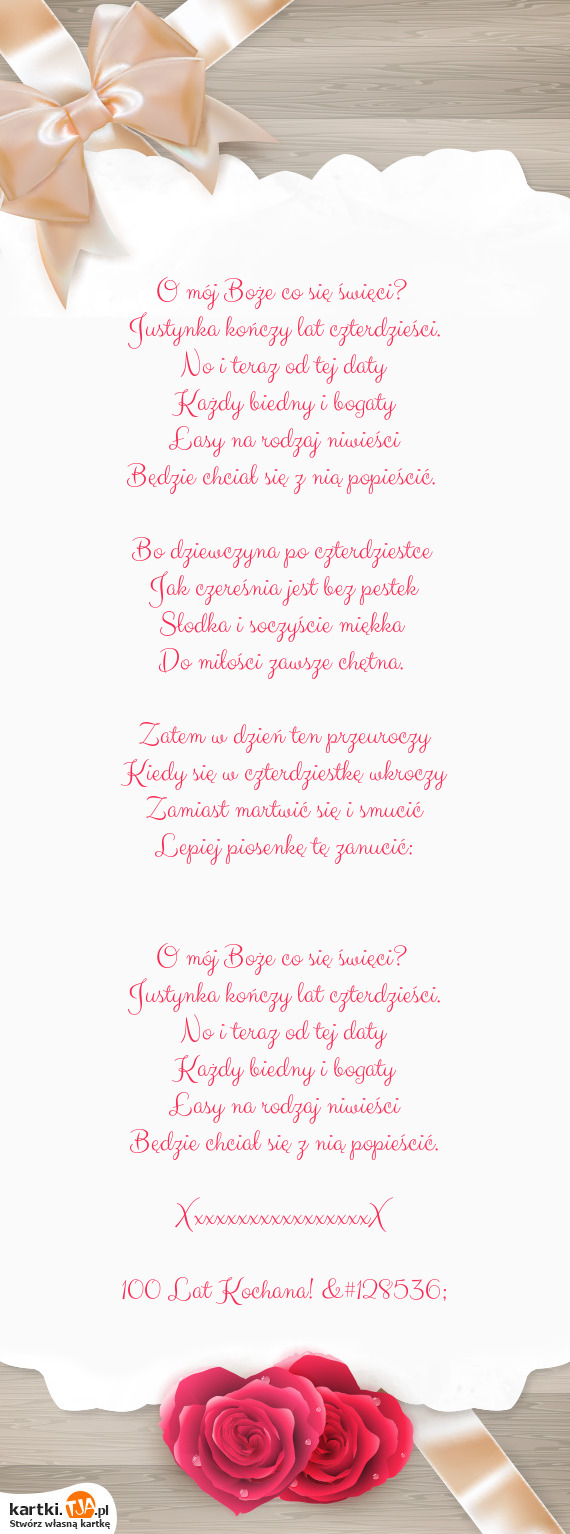 O mój Boże co się święci?
Justynka kończy lat czterdzieści.
No i teraz od tej daty
Każdy biedny i bogaty
Łasy na rodzaj niwieści
Będzie chciał się z nią popieścić.
Bo dziewczyna po czterdziestce
Jak czereśnia jest bez pestek
Słodka i soczyście miękka
Do miłości zawsze chętna.
Zatem w dzień ten przeuroczy
Kiedy się w czterdziestkę wkroczy
Zamiast martwić się i smucić
Lepiej piosenkę tę zanucić:
O mój Boże co się święci?
Justynka kończy lat czterdzieści.
No i teraz od tej daty
Każdy biedny i bogaty
Łasy na rodzaj niwieści
Będzie chciał się z nią popieścić.
XxxxxxxxxxxxxxxxxX
100 Lat Kochana! &#128536;
kartki.TJA.pl
Stwórz własną kartkę